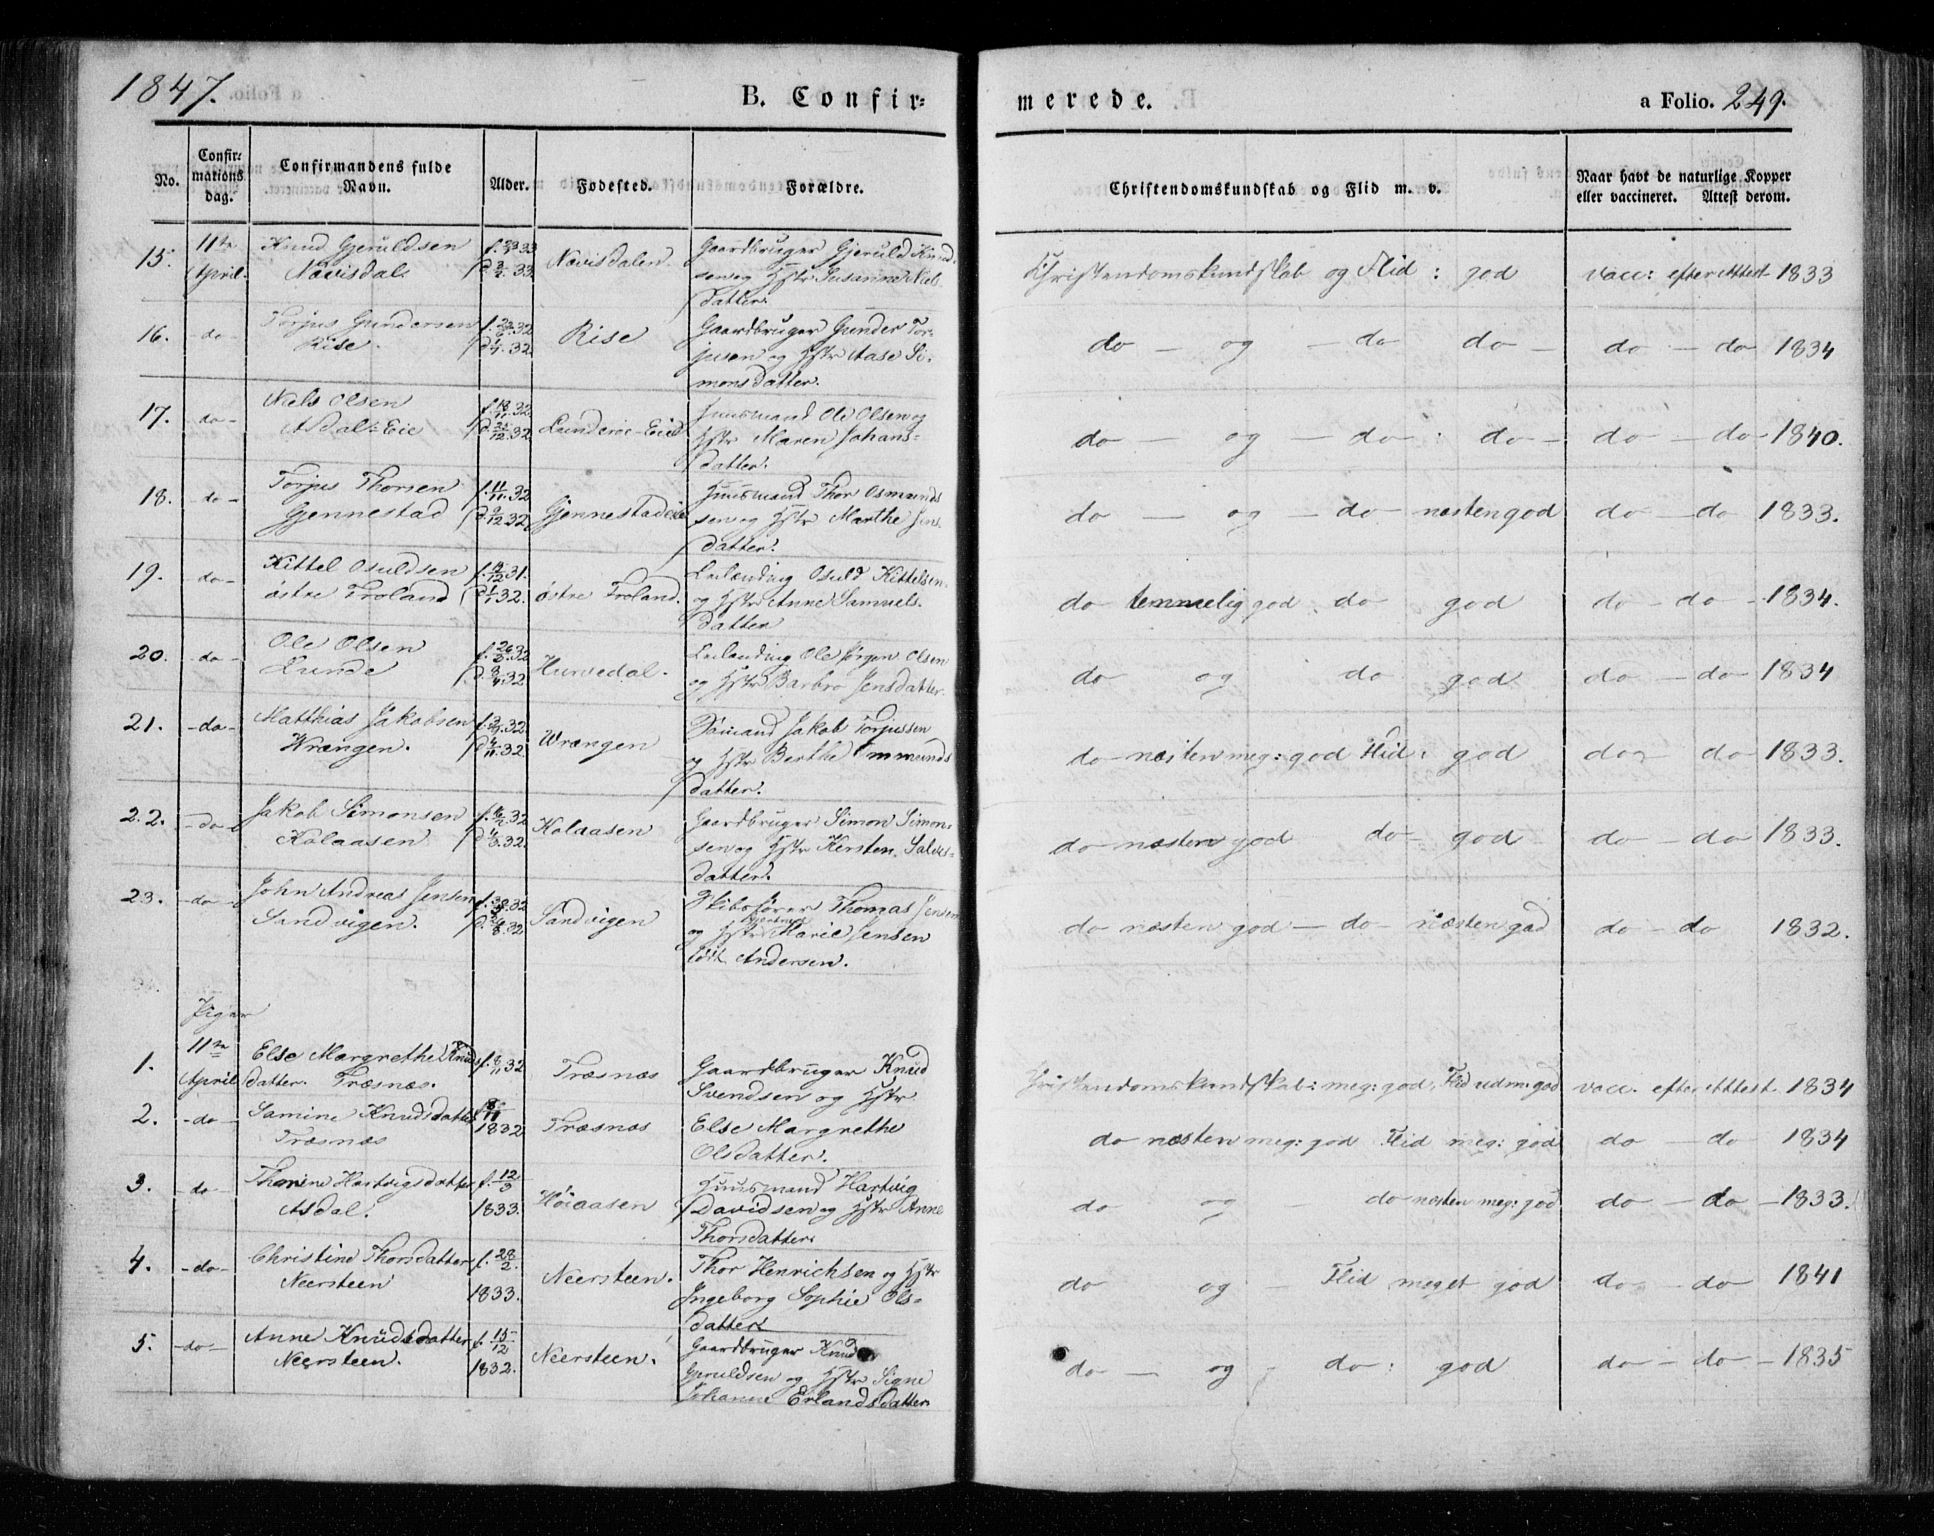 1847.
B. Confir=
merede.
a Folio. 249.
No.
Confir=
mations
dag.
Confirmandens fulde
Navn.
Alder.
Fødested.
Forældre.
Christendomskundskab og Flid m. v.
Naar havt de naturlige Kopper
eller vaccineret. Attest derom.
15. 11te April. Knud Gjeruldsen
Nævisdal
Nævisdalen.
Gaardbruger Gjeruld Knud
sen og Hstr Susanne Niels
datter.
Christendomskundskab og Flid: god vacc: efter Attest 1833
16. - do - Torjus Gundersen
Rise.
Rise
Gaardbruger Gunder Tor-
jusen og Hstr Aase Si-
monsdatter.
do - og - do do - do - do 1834
17. do - Niels Olsen
Asdal=Eie
Lunderøe-Eied
Huusmand Ole Olsen og
Hstr Maren Johans-
datter.
do - og - do : do - do - do - 1840.
18. - do - Torjus Thorsen
Gjennestad
f. 11/11.32
d. 9/12.32
Gjennestadeie
Huusmand Thor Osmunds
sen og Hstr Marthe Jens
datter.
do - og - do næsten god do - do 1833.
19. do - Kittel Osuldsen
østre Froland
østre Froland.
Leilænding Osuld Kittelsen
og Hstr Anne Samuels.
datter
do temmelig god. do god do - do - 1834.
20. - do - Ole Olsen
Lunde
Hurvedal.
Leilænding Ole Jørgen Olsen
og Hstr Barbro Jensdatter.
do og do god do - do - 1834
21. - do - Matthias Jakobsen
Wrængen.
Wrængen
Sömand Jakob Torjussen
og Hstr Berthe Ommunds
datter.
do - næsten meg: god Flid: god do - do - 1833.
22. - do - Jakob Simonsen
Kalaasen
Kalaasen
Gaardbruger Simon Simon-
sen og Hstr Kersten Salves-
datter.
do næsten god do - god do - do - 1833.
23. - do - John Andreas Jensen
Sandvigen.
Sandvigen
Skibsfører Thomas Jensen
og Hstr Marie Jensen
född Andersen.
do næsten god - do - næsten god do - do 1832.
Piger
1. 11te April Else Margrethe Knuds
datter. Træsnæs.
f. 8/11 32
Træsnæs
Gaardbruger Knud
Svendsen og Hstr
Christendomskundskab: meg: god, Flid udm: god vacc. efter Attest. 1834
2. - do - Samine Knudsdatter
Træsnæs
8/11 1832
Træsnæs
Else Margrethe
Olsdatter.
do næsten meg: god Flid meg: god do - do 1834
3. - do - Thorine Hartvigsdatter
Asdal.
f. 12/3 1833.
Höiaasen
Huusmand Hartvig
Davidsen og Hstr Anne
Thorsdatter
do og - do næsten meg: god do - do - 1833.
4. - do - Christine Thorsdatter
Neersteen
f. 28/2. 1833.
Neersteen.
Thor Henrichsen og Hstr
Ingeborg Sophie Ols-
datter
do og - Flid meget god do - do - 1841
5. - do - Anne Knudsdatter
Neersteen.
f. 15/12 1832.
Neersteen.
Gaardbruger Knud
Gjeruldsen og Hstr Signe
Johanne Erlandsdatter.
do - og - do: god do - do - 1835